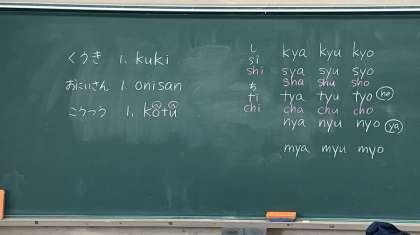 くうき 1. kuki
おにいさん 1 onisan
こうつう 1. kôtû
し kya kyu kyo
si sya syu syo
shi sha shu sho
ち
ti tya tyu tyo no
chi cha chu cho
nya nyu nyo ya
mya myu myo